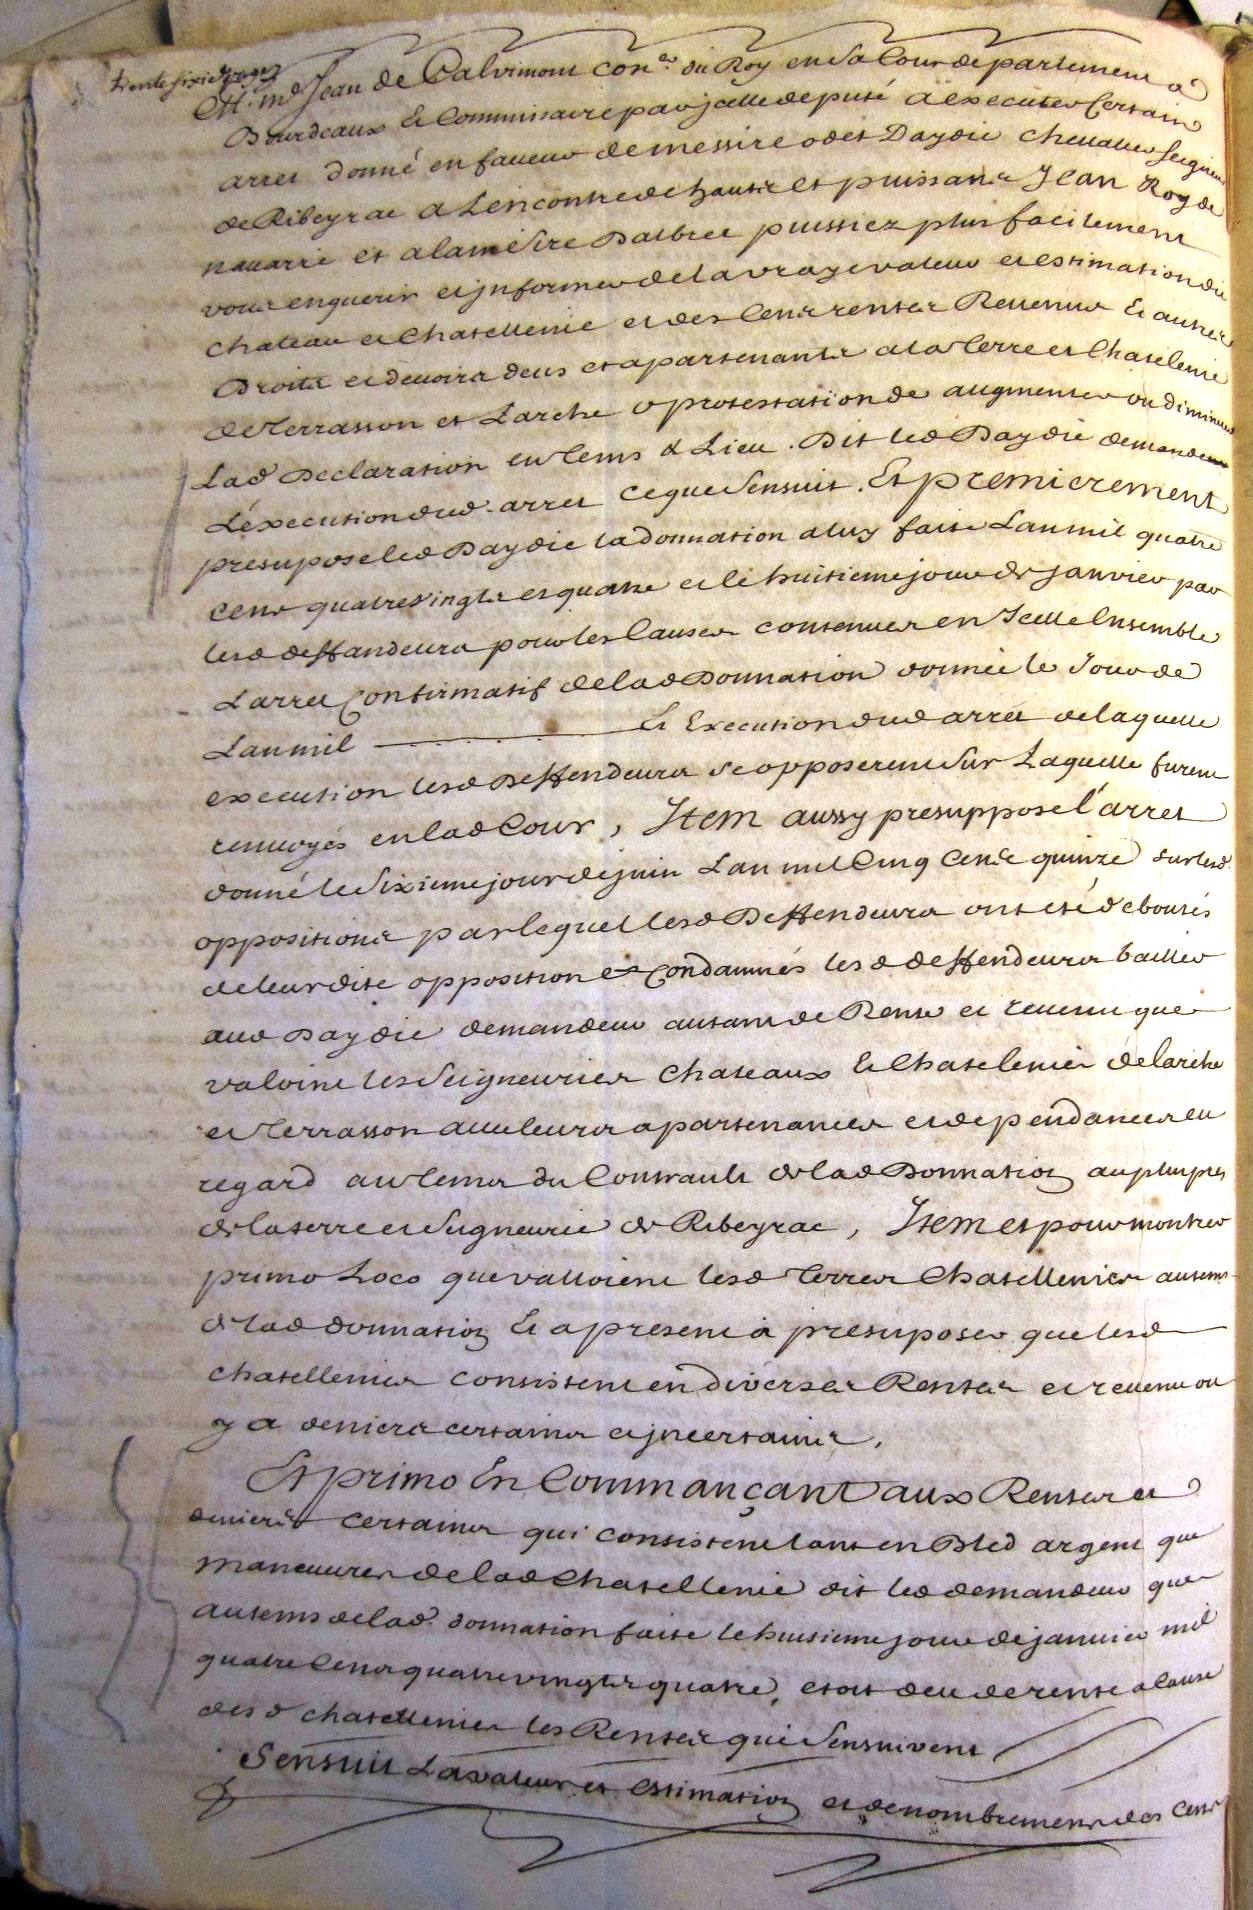 trente sixie page
Mr. Me Jean de Calvimont coner du Roy en sa Cour de parlement a
Bourdeaux et Commissaire par jcelle deputé a executer Certain
arret donné en faveur de messire odet Daydie chevalier seigneur
de Ribeyrac a Lencontre de hautz et puissants Jean Roy de
navarre et alain Sire Dalbret puissiez plus facilement
vous enquerir et jnformer de la vraye valeur et estimation du
chateau et Chatellenie et des Cens rentes Revenus et autres
Droits et devoirs deus et apartenants a la terre et Chatelenie
de Terrasson et Larche o protestation de augmenter ou diminuer
Lad Declaration en tems & Lieu. Dit led Daydie demandeur
Léxecution dud. arret ce que sensuit. Et premierement
presupose led Daydie la donnation a luy faite Lan mil quatre
cens quatre vingts et quatre et le huitieme jour de janvier par
lesd deffandeurs pour les Causes contenues en Jcelle Ensemble
Larret Confirmatif de lad Donnation donnée le Jour de
Lan mil ---------- Et Execution dud arret de laquelle
execution lesd Deffendeurs se opposerent sur Laquelle furent
renvoyés en lad Cour, Item aussy presuppose l'arret
donné le sixieme jour de juin Lan mil Cinq Cens quinze sur lesd.
oppositions par lequel lesd Deffendeurs ont eté deboutés
de leur dite opposition et Condamnés lesd deffendeurs bailler
aud Daydie demandeur autant de Rente et revenu que
valoint les seigneuries chateaux et Chatelenies de larche
et Terrasson avec leurs apartenances et dependances eu
regard au tems du Contrault de lad Donnation au plus pres
de la terre et seigneurie de Ribeyrac, Item et pour montrer
primo Loco que valloient lesd terres Chatellenies au tems
de lad donnation et a present a presuposer que lesd
chatellenies consistent en diverses Rentes et revenu ou
y a deniers certains et jncertains.
Et primo En Commançant aux Rentes et
deniers certains qui consistent tant en Bled argent que
maneuvres de lad Chatellenie dit led demandeur que
au tems de lad. donnation faite le huitieme jour de janvier mil
quatre Cens quatre vingts quatre, etoit deu de rente a Cause
des d chatellenies les Rentes qui sensuivent
Sensuit La valeur et Estimation et denombrement des Cens